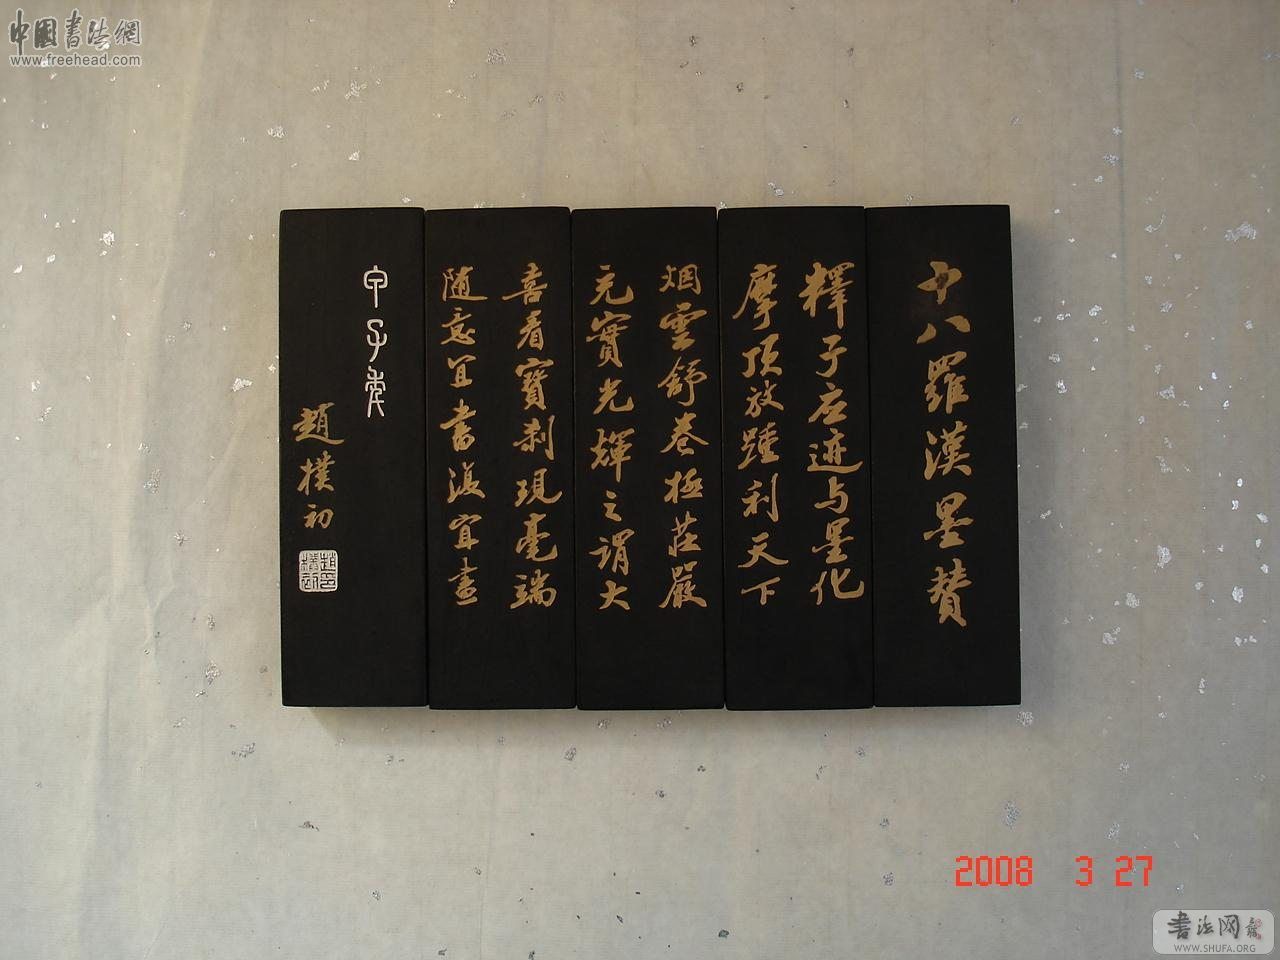 中國書法網
www.freehead.com
十八羅漢墨贊
釋子应迹与墨化
摩顶放踵利天下
烟雲舒卷極莊嚴
充實光輝之謂大
喜看寶刹現毫端
随意宜書復宜畫
甲子年
趙樸初
趙樸初印
2008 3 27
书法网
WWW.SHUFA.ORG